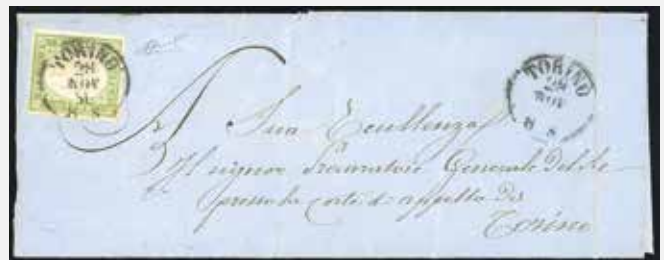 TORINO
28
NOV
8 S
TORINO
28
NOV
8 S
A
Sua Eccellenza
Il signor Procuratore Generale Del Re
presso la corte d'appello Di
Torino